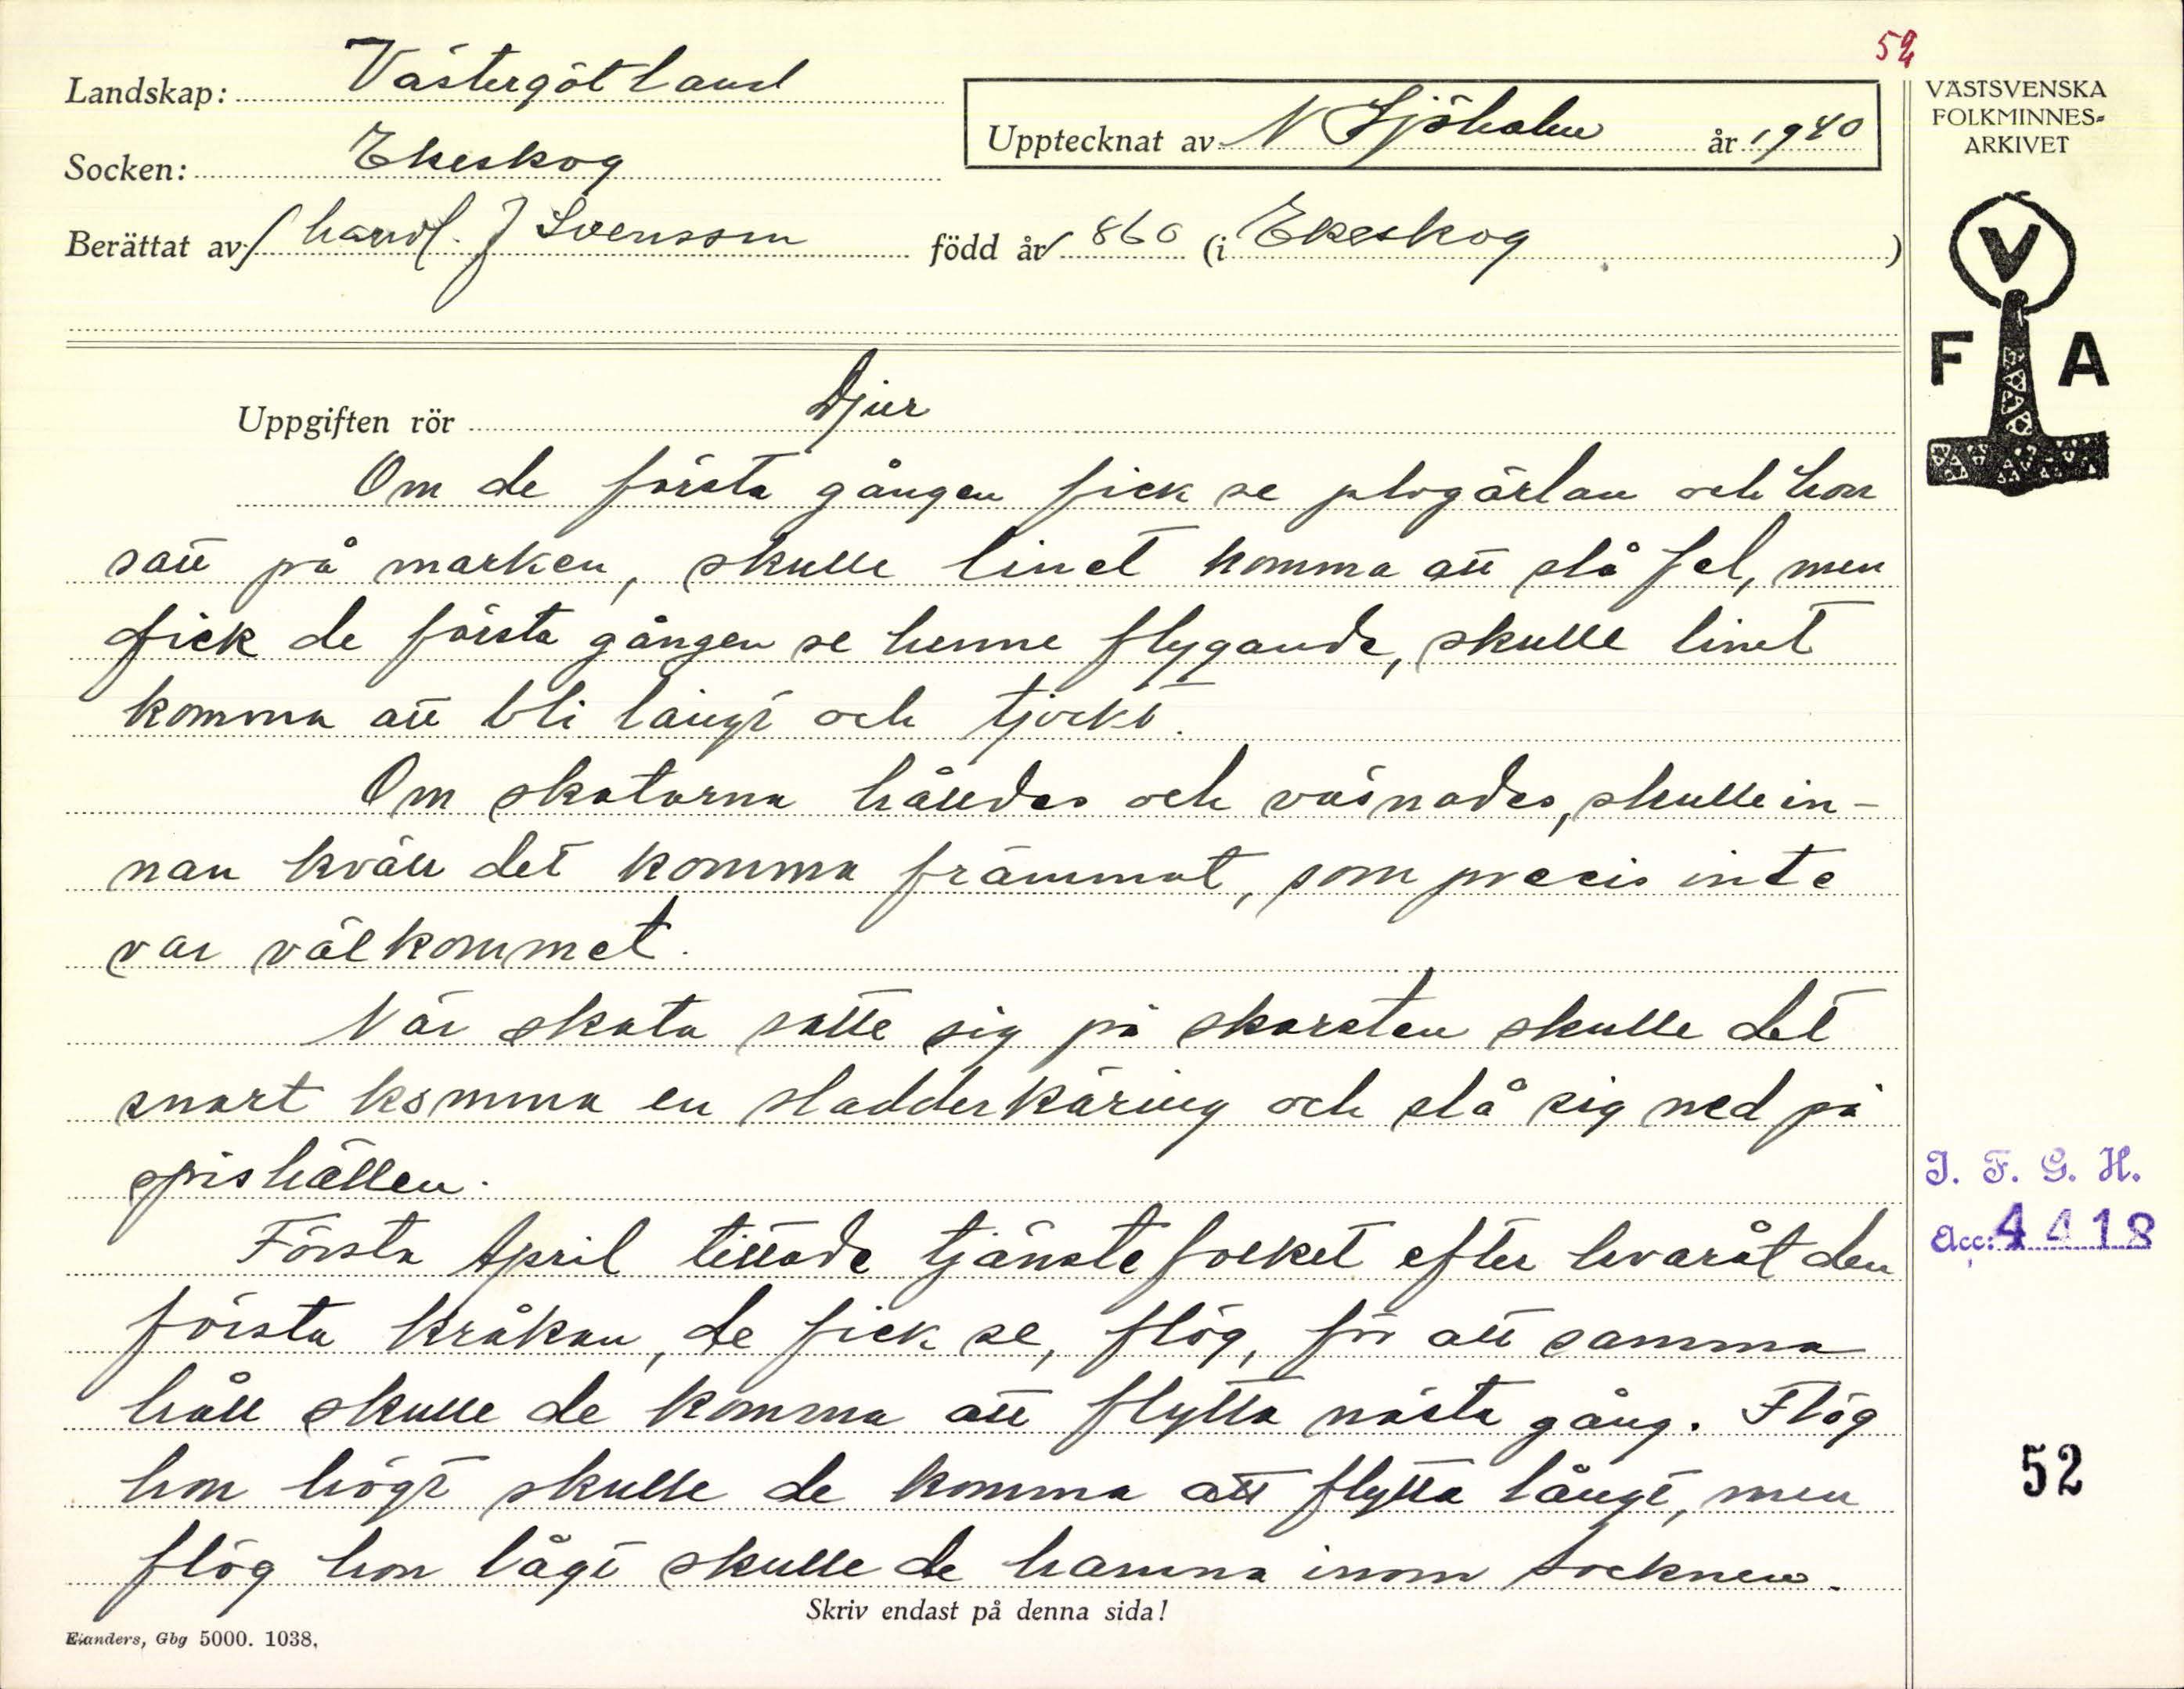 52
Landskap: Västergötland
Socken: Ekeskog
Upptecknat av N Sjöholm år 1940
Berättat av handl. J Svensson född år 1860 (i Ekeskog)
VÄSTSVENSKA
FOLKMINNES-
ARKIVET
V
F A
Uppgiften rör Djur
Om de första gången fick se plogärlan och hon
satt på marken, skulle linet komma att slå fel, men
fick de första gången se henne flygande, skulle linet
komma att bli långt och tjockt.
Om skatorna hölldes och väsnades, skulle in-
nan kväll det komma främmat, som precis inte
var välkommet.
När skata satte sig på skorsten skulle det
snart komma en sladderkäring och slå sig ned på
spishällen.
Första April tittade tjänstefolket efter hvaråt den
första kråkan, de fick se, flög, för att samma
håll skulle de komma att flytta nästa gång. Flög
hon högt skulle de komma att flytta långt, men
flög hon lågt skulle de hamna inom socknen.
Skriv endast på denna sida!
Elanders, Gbg 5000. 1038.
I. F. G. H.
Acc: 4418
52